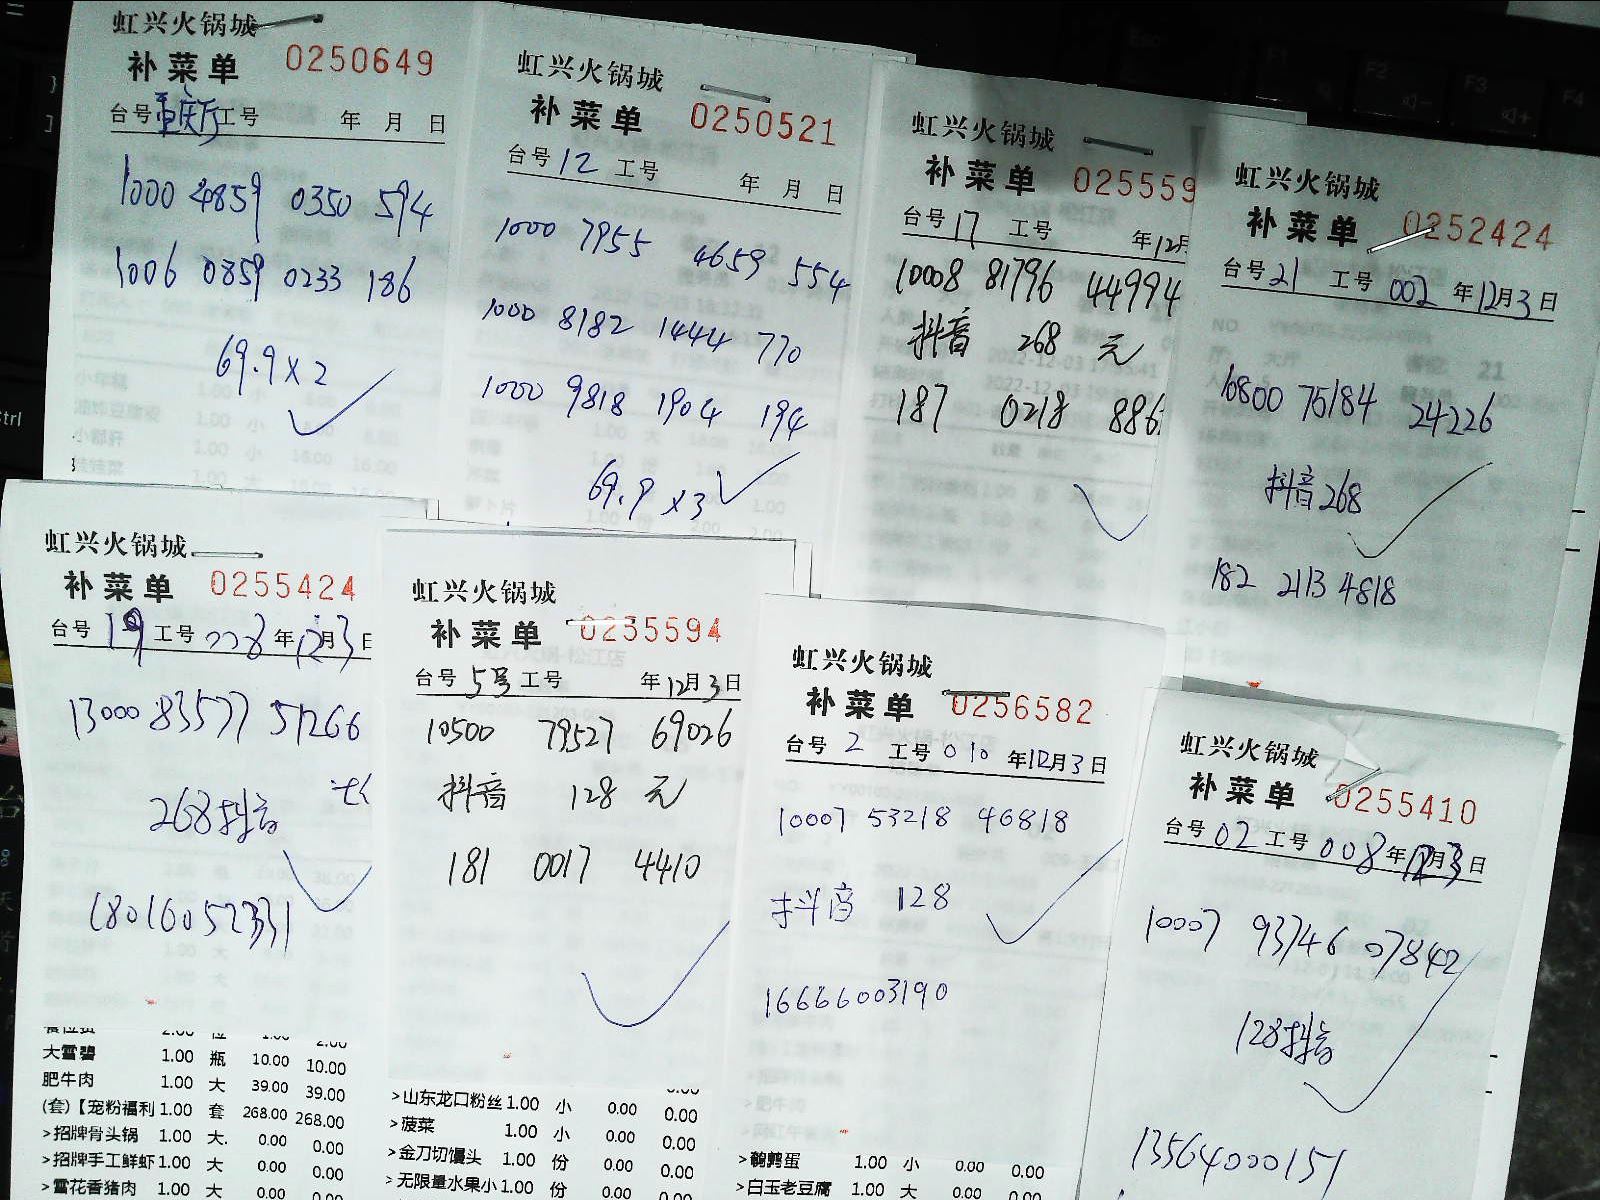 虹兴火锅城
补菜单 0250649
台号重庆厅工号 年 月 日
1000 2859 0350 594
1006 0859 0233 186
69.9×2
虹兴火锅城
补菜单 0250521
台号12 工号 年 月 日
1000 7955 4659 554
1000 8182 1444 770
1000 9818 1904 194
69.9×3
虹兴火锅城
补菜单 025559
台号17 工号 年12月
10008 81796 44994
抖音 268 元
187 0218 886
虹兴火锅城
补菜单 0252424
台号21 工号 002 年12月3日
10800 75184 24226
抖音268
182 2113 4818
虹兴火锅城
补菜单 0255424
台号19 工号008年12月3日
13000 83577 51266
268抖音
18016052331
餐位费 2.00 位 1.00 2.00
大雪碧 1.00 瓶 10.00 10.00
肥牛肉 1.00 大 39.00 39.00
(套)【宠粉福利 1.00 套 268.00 268.00
>招牌骨头锅 1.00 大. 0.00 0.00
>招牌手工鲜虾 1.00 大 0.00 0.00
>雪花香猪肉 1.00 大 0.00 0.00
虹兴火锅城
补菜单 0255594
台号5号工号 年12月3日
10500 79527 69026
抖音 128 元
181 0017 4410
>山东龙口粉丝1.00 小 0.00 0.00
>菠菜 1.00 小 0.00 0.00
>金刀切馒头 1.00 份 0.00 0.00
>无限量水果小1.00 份 0.00 0.00
虹兴火锅城
补菜单 0256582
台号 2 工号 010 年12月3日
10007 53218 46818
抖音 128
16666003190
>鹌鹑蛋 1.00 小 0.00 0.00
>白玉老豆腐 1.00 大 0.00 0.00
虹兴火锅城
补菜单 0255410
台号02工号008年12月3日
10007 93746 07842
128抖音
13564000151